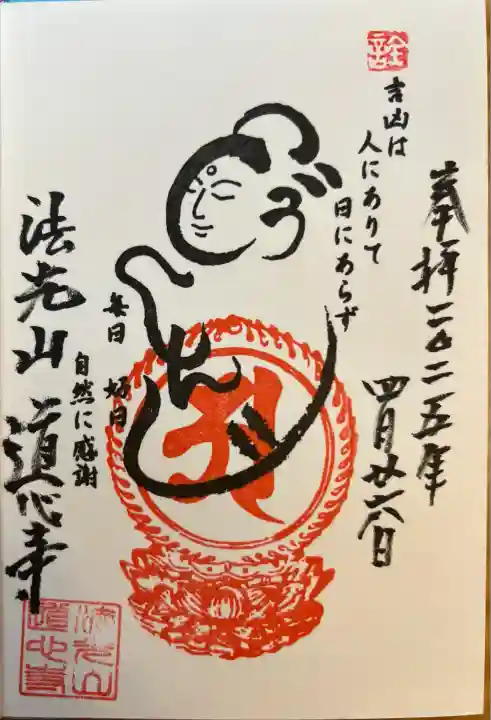 奉拝 二〇二五年
四月廿六日
吉凶は
人にありて
日にあらず
毎日 好日
自然に感謝
法光山 道心寺
法光山
道心寺